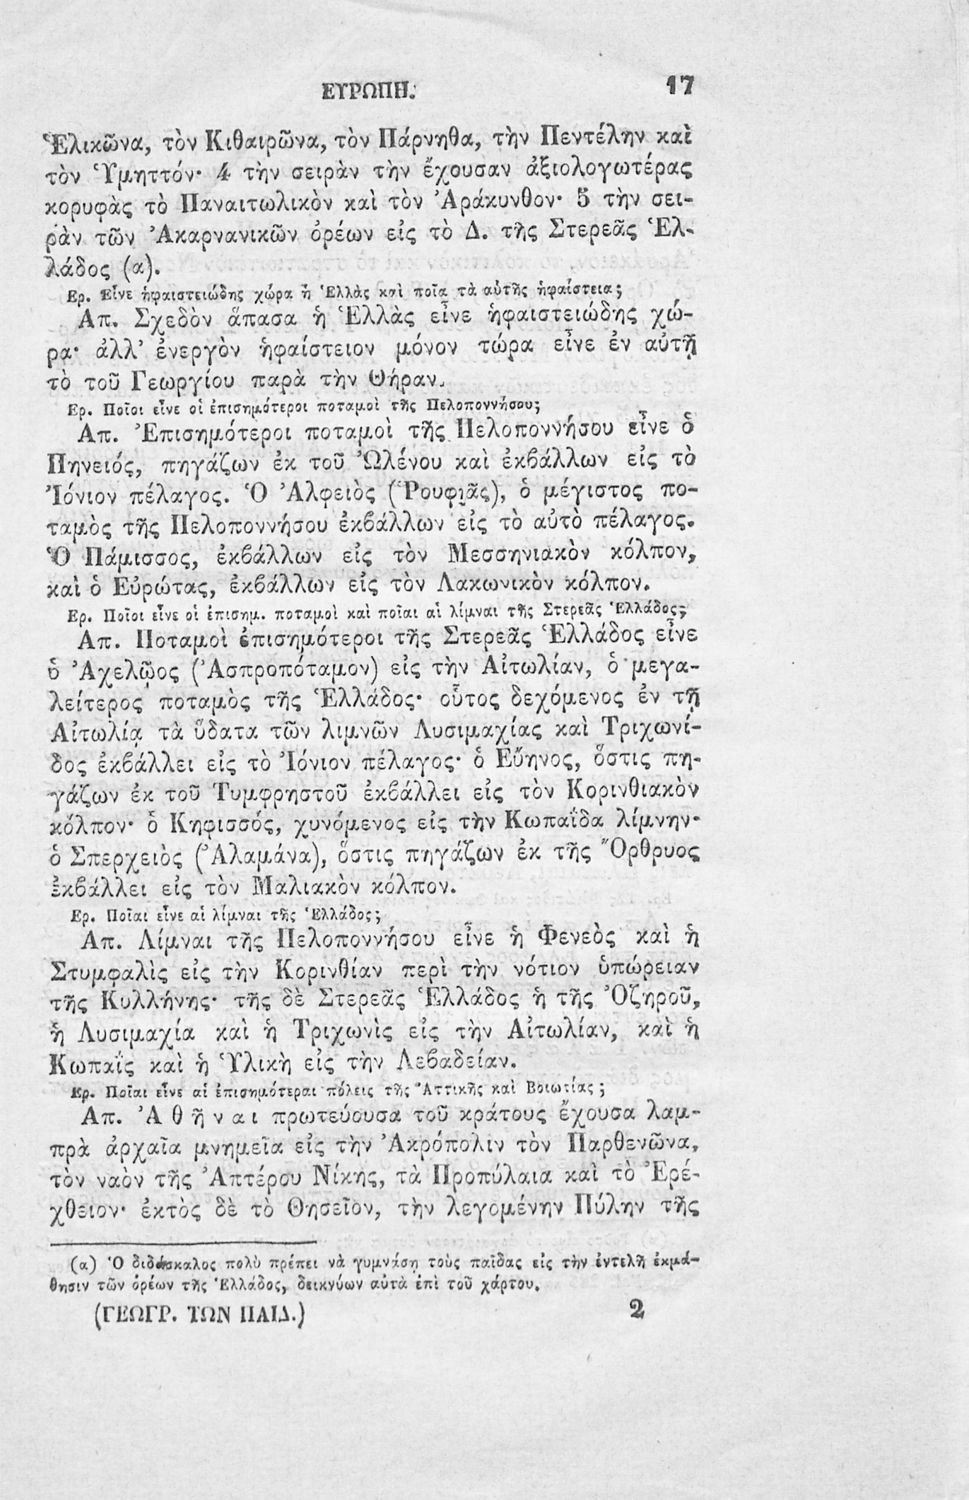 ΕΥΡΩΠΗ. 17
Ἑλικῶνα, τὸν Κιθαιρῶνα, τὸν Πάρνηθα, τὴν Πεντέλην καὶ
τὸν Ὑμηττόν· 4 τὴν σειρὰν τὴν ἔχουσαν ἀξιολογωτέρας
κορυφὰς τὸ Παναιτωλικὸν καὶ τὸν Ἀράκυνθον· 5 τὴν σει-
ρὰν τῶν Ἀκαρνανικῶν ὀρέων εἰς τὸ Δ. τῆς Στερεᾶς Ἑλ-
λάδος (α).
Ερ. Εἶνε ἡφαιστειώδης χώρα ἡ Ἑλλὰς καὶ ποῖα τὰ αὐτῆς ἡφαίστεια;
Απ. Σχεδὸν ἅπασα ἡ Ἑλλὰς εἶνε ἡφαιστειώδης χώ-
ρα· ἀλλ' ἐνεργὸν ἡφαίστειον μόνον τώρα εἶνε ἐν αὐτῇ
τὸ τοῦ Γεωργίου παρὰ τὴν Θήραν.
Ερ. Ποῖοι εἶνε οἱ ἐπισημότεροι ποταμοὶ τῆς Πελοποννήσου;
Απ. Ἐπισημότεροι ποταμοὶ τῆς Πελοποννήσου εἶνε ὁ
Πηνειός, πηγάζων ἐκ τοῦ Ὠλένου καὶ ἐκβάλλων εἰς τὸ
Ἰόνιον πέλαγος. Ὁ Ἀλφειὸς (Ῥουφιᾶς), ὁ μέγιστος πο-
ταμὸς τῆς Πελοποννήσου ἐκβάλλων εἰς τὸ αὐτὸ πέλαγος.
Ὁ Πάμισσος, ἐκβάλλων εἰς τὸν Μεσσηνιακὸν κόλπον,
καὶ ὁ Εὐρώτας, ἐκβάλλων εἰς τὸν Λακωνικὸν κόλπον.
Ερ. Ποῖοι εἶνε οἱ ἐπισημ. ποταμοὶ καὶ ποῖαι αἱ λίμναι τῆς Στερεᾶς Ἑλλάδος;
Απ. Ποταμοὶ ἐπισημότεροι τῆς Στερεᾶς Ἑλλάδος εἶνε
ὁ Ἀχελῷος (Ἀσπροπόταμον) εἰς τὴν Αἰτωλίαν, ὁ μεγα-
λείτερος ποταμὸς τῆς Ἑλλάδος· οὗτος δεχόμενος ἐν τῇ
Αἰτωλίᾳ τὰ ὕδατα τῶν λιμνῶν Λυσιμαχίας καὶ Τριχωνί-
δος ἐκβάλλει εἰς τὸ Ἰόνιον πέλαγος· ὁ Εὔηνος, ὅστις πη-
γάζων ἐκ τοῦ Τυμφρηστοῦ ἐκβάλλει εἰς τὸν Κορινθιακὸν
κόλπον· ὁ Κηφισσός, χυνόμενος εἰς τὴν Κωπαΐδα λίμνην·
ὁ Σπερχειὸς (Ἀλαμάνα), ὅστις πηγάζων ἐκ τῆς Ὄρθρυος
ἐκβάλλει εἰς τὸν Μαλιακὸν κόλπον.
Ερ. Ποῖαι εἶνε αἱ λίμναι τῆς Ἑλλάδος;
Απ. Λίμναι τῆς Πελοποννήσου εἶνε ἡ Φενεὸς καὶ ἡ
Στυμφαλὶς εἰς τὴν Κορινθίαν περὶ τὴν νότιον ὑπώρειαν
τῆς Κυλλήνης· τῆς δὲ Στερεᾶς Ἑλλάδος ἡ τῆς Ὀζηροῦ,
ἡ Λυσιμαχία καὶ ἡ Τριχωνὶς εἰς τὴν Αἰτωλίαν, καὶ ἡ
Κωπαΐς καὶ ἡ Ὑλικὴ εἰς τὴν Λεβαδείαν.
Ερ. Ποῖαι εἶνε αἱ ἐπισημότεραι πόλεις τῆς Ἀττικῆς καὶ Βοιωτίας;
Απ. Ἀθῆναι πρωτεύουσα τοῦ κράτους ἔχουσα λαμ-
πρὰ ἀρχαῖα μνημεῖα εἰς τὴν Ἀκρόπολιν τὸν Παρθενῶνα,
τὸν ναὸν τῆς Ἀπτέρου Νίκης, τὰ Προπύλαια καὶ τὸ Ἐρέ-
χθειον· ἐκτὸς δὲ τὸ Θησεῖον, τὴν λεγομένην Πύλην τῆς
(α) Ὁ διδάσκαλος πολὺ πρέπει νὰ γυμνάσῃ τοὺς παῖδας εἰς τὴν ἐντελῆ ἐκμά-
θησιν τῶν ὀρέων τῆς Ἑλλάδος, δεικνύων αὐτὰ ἐπὶ τοῦ χάρτου.
(ΓΕΩΓΡ. ΤΩΝ ΠΑΙΔ.) 2